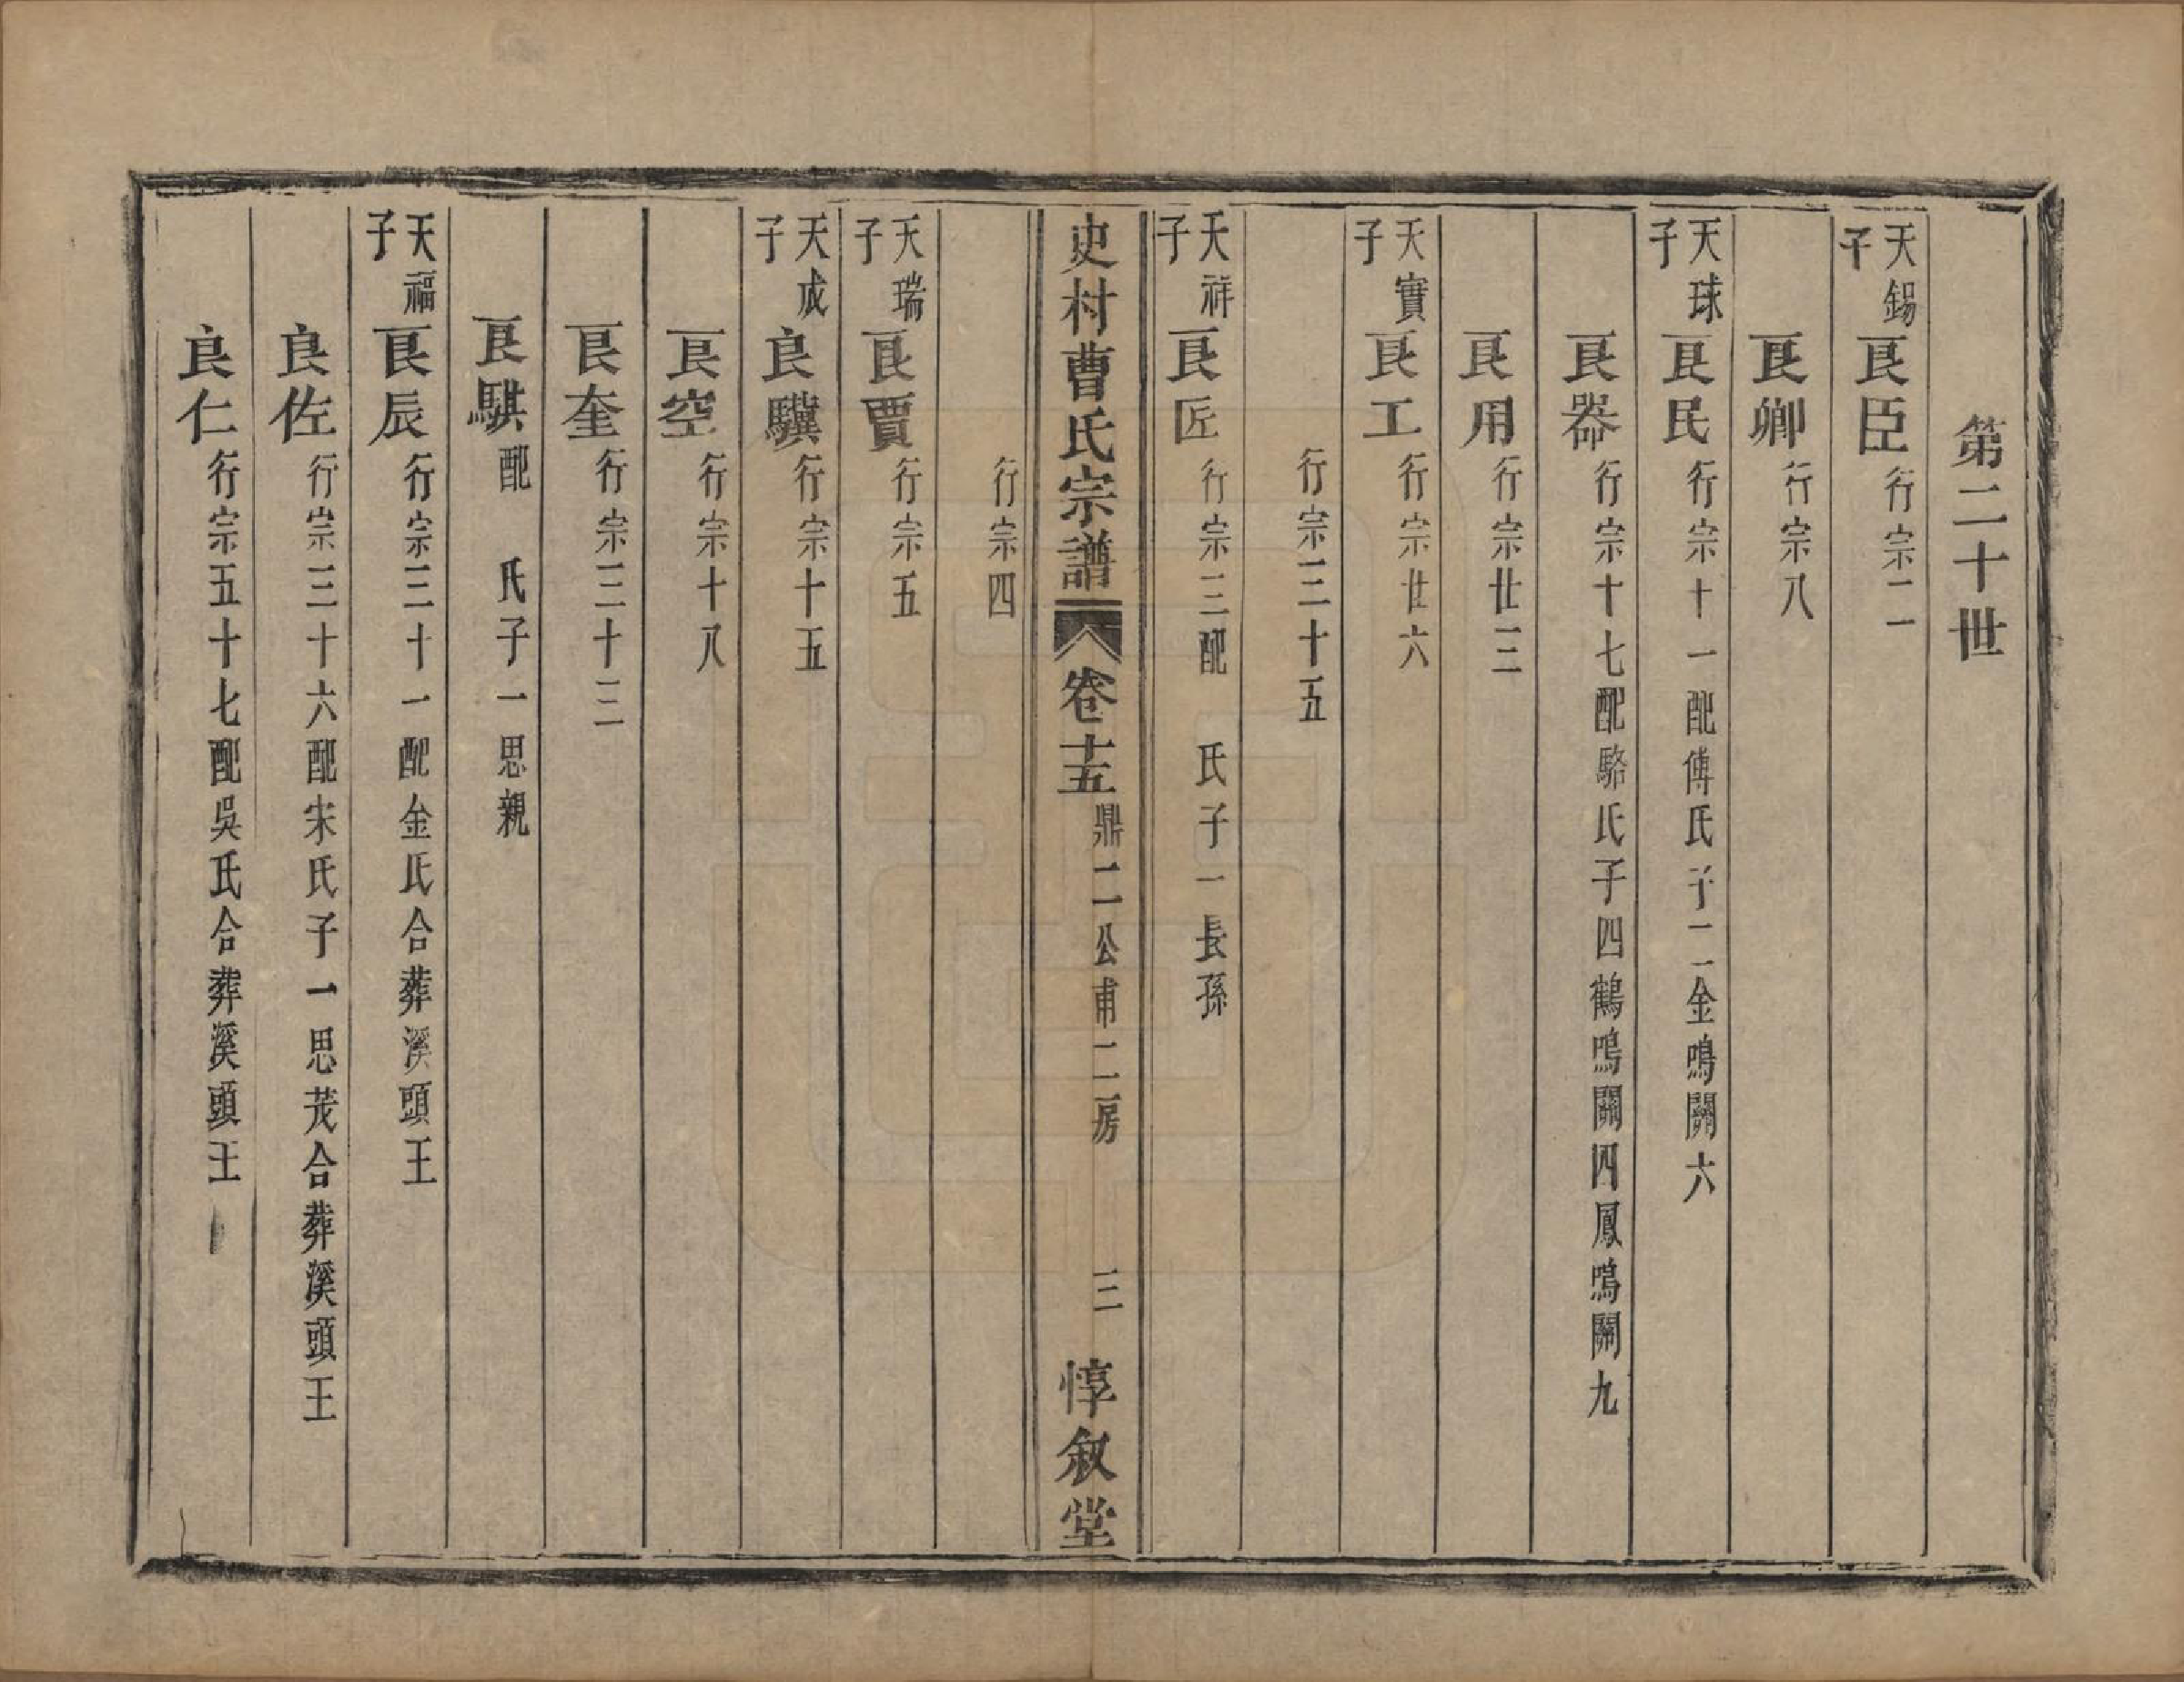 第二十世
天錫子 良臣 行宗二
良卿 行宗八
天球子 良民 行宗十一配傅氏子二金鳴關六
良器 行宗十七配駱氏子四鶴鳴關四鳳鳴關九
良用 行宗廿三
天寶子 良工 行宗廿六
行宗三十五
天祥子 良匠 行宗三配 氏子一長孫
史村曹氏宗譜 卷十五 鼎二公甫二房 三 惇叙堂
行宗四
天瑞子 良賈 行宗五
天成子 良驥 行宗十五
良空 行宗十八
良奎 行宗三十三
良騏 配 氏子一思親
天福子 良辰 行宗三十一配金氏合葬溪頭王
良佐 行宗三十六配宋氏子一思茂合葬溪頭王
良仁 行宗五十七配吳氏合葬溪頭王